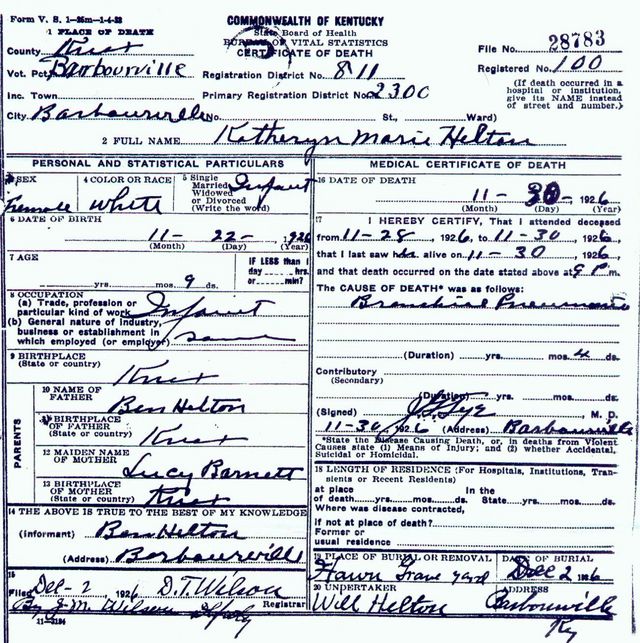 Form V. S. 1—25m—1-4-22
COMMONWEALTH OF KENTUCKY
State Board of Health
BUREAU OF VITAL STATISTICS
CERTIFICATE OF DEATH
1 PLACE OF DEATH
County Knox
File No. 28783
Vot. Pct. Barbourville
Registration District No. 811
Registered No. 100
Inc. Town
Primary Registration District No. 2300
(If death occurred in a hospital or institution, give its NAME instead of street and number.)
City Barbourville No. St., Ward)
2 FULL NAME Katheryn Marie Helton
PERSONAL AND STATISTICAL PARTICULARS
3 SEX Female
4 COLOR OR RACE White
5 Single Married Widowed or Divorced (Write the word) Infant
6 DATE OF BIRTH
11 - 22 - , 1926
(Month) (Day) (Year)
7 AGE
yrs. mos. 9 ds.
IF LESS than 1 day hrs. or min.?
8 OCCUPATION
(a) Trade, profession or particular kind of work Infant
(b) General nature of industry, business or establishment in which employed (or employer) same
9 BIRTHPLACE
(State or country) Knox
PARENTS
10 NAME OF FATHER Ben Helton
11 BIRTHPLACE OF FATHER
(State or country) Knox
12 MAIDEN NAME OF MOTHER Lucy Barnett
13 BIRTHPLACE OF MOTHER
(State or country) Knox
14 THE ABOVE IS TRUE TO THE BEST OF MY KNOWLEDGE
(Informant) Ben Helton
(Address) Barbourville
15
Filed Dec - 2 1926 D.T. Wilson
By J.M. Wilson Deputy Registrar
11-3184
MEDICAL CERTIFICATE OF DEATH
16 DATE OF DEATH
11 - 30 - 1926
(Month) (Day) (Year)
17 I HEREBY CERTIFY, That I attended deceased
from 11-28, 1926, to 11-30, 1926,
that I last saw h alive on 11-30, 1926,
and that death occurred on the date stated above at 9 P m.
The CAUSE OF DEATH* was as follows:
Bronchial Pneumonia
(Duration) yrs. mos. 4 ds.
Contributory
(Secondary)
(Duration) yrs. mos. ds.
(Signed) , M. D.
11-30, 1926 (Address) Barbourville
*State the Disease Causing Death, or, in deaths from Violent Causes state (1) Means of Injury; and (2) whether Accidental, Suicidal or Homicidal.
18 LENGTH OF RESIDENCE (For Hospitals, Institutions, Transients or Recent Residents)
at place of death yrs. mos. ds. In the State yrs. mos. ds.
Where was disease contracted,
if not at place of death?
Former or
usual residence
19 PLACE OF BURIAL OR REMOVAL DATE OF BURIAL
Hawn Grave yard Dec 2 1926
20 UNDERTAKER ADDRESS
Will Helton Barbourville
Ky